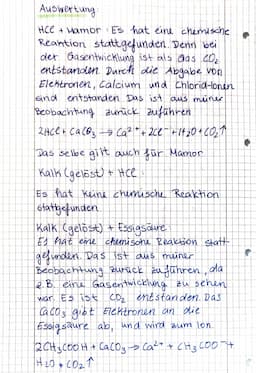 Auswertung:
HCl + Mamor: Es hat eine chemische
Reaktion stattgefunden. Denn bei
der Gasentwicklung ist als Gas CO₂
entstanden. Durch die Abgabe von
Elektronen, Calcium und Chlorid-Ionen
sind entstanden. Das ist aus meiner
Beobachtung zurück zuführen
2HCl + CaCO₃ → Ca²⁺ + 2Cl⁻ + H₂O + CO₂↑
Das selbe gilt auch für Mamor
Kalk (gelöst) + HCl:
Es hat keine chemische Reaktion
stattgefunden.
Kalk (gelöst) + Essigsäure:
Es hat eine chemische Reaktion statt-
gefunden. Das ist aus meiner
Beobachtung zurück zuführen, da
z.B. eine Gasentwicklung zu sehen
war. Es ist CO₂ entstanden. Das
CaCO₃ gibt Elektronen an die
Essigsäure ab, und wird zum Ion.
2CH₃COOH + CaCO₃ → Ca²⁺ + CH₃COO⁻ +
H₂O + CO₂↑